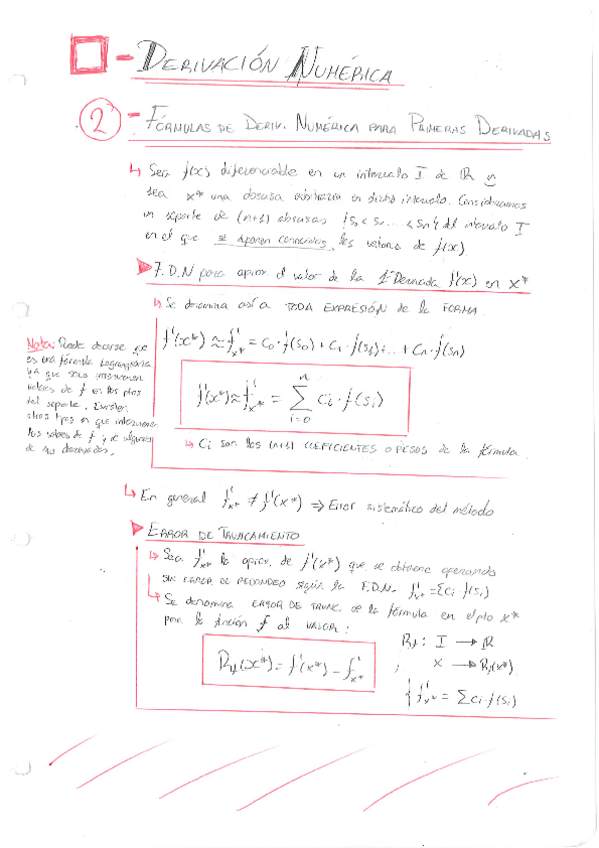 - DERIVACIÓN NUMÉRICA
2 - FÓRMULAS DE DERIV. NUMÉRICA PARA PRIMERAS DERIVADAS
↳ Sea f(x) diferenciable en un intervalo I de ℝ y
sea x* una abscisa arbitraria en dicho intervalo. Consideramos
un soporte de (n+1) abscisas {s₀ < s₁ ... < sₙ} del intervalo I
en el que se suponen conocidos los valores de f(x)
F.D.N para aprox. el valor de la 1ª Derivada f'(x) en x*
↳ Se denomina así a TODA EXPRESIÓN de la FORMA
f'(x*) ≈ f'ₓ* = C₀·f(s₀) + C₁·f(s₁) + ... + Cₙ·f(sₙ)
f'(x*) ≈ f'ₓ* = Σ Ci·f(si)
n
i=0
↳ Ci son los (n+1) COEFICIENTES o PESOS de la fórmula
Nota: Puede decirse que
es una fórmula Lagrangiana
ya que solo intervienen
valores de f en los ptos
del soporte. Existen
otros tipos en que intervienen
los valores de f y de algunas
de sus derivadas.
↳ En general f'ₓ* ≠ f'(x*) ⇒ Error sistemático del método
ERROR DE TRUNCAMIENTO
↳ Sea f'ₓ* la aprox. de f'(x*) que se obtiene operando
SIN ERROR DE REDONDEO según la F.D.N. f'ₓ* = Σci·f(si)
↳ Se denomina ERROR DE TRUNC. de la fórmula en el pto x*
para la función f al VALOR:
R_f(x*) = f'(x*) - f'ₓ*
; R_f : I → ℝ
x → R_f(x*)
{ f'ₓ* = Σci·f(si)